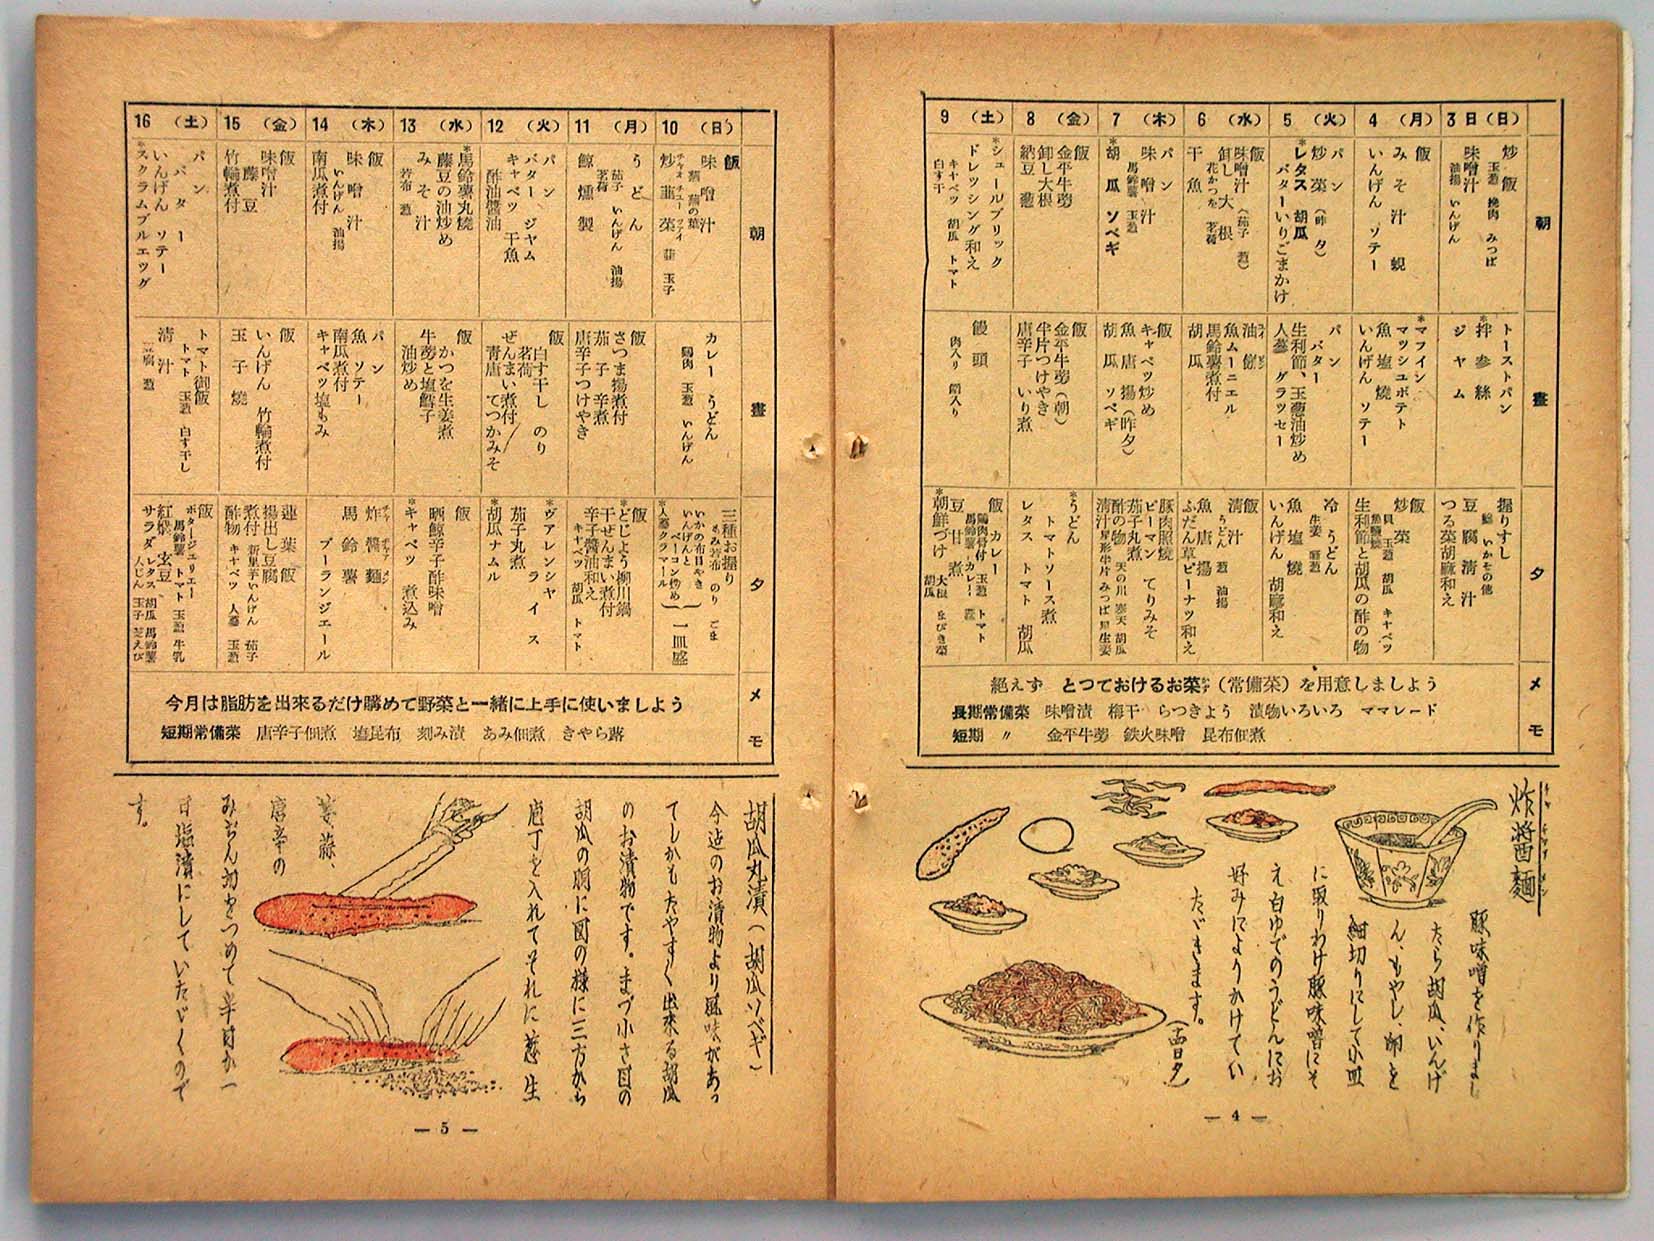 3日(日)
炒飯 玉葱 挽肉 みつば
味噌汁 油揚 いんげん
トーストパン
*拌参絲
ジヤム
握りすし
鯵 いかその他
豆腐清汁
つる菜胡麻和え
4(月)
飯
みそ汁 蜆
いんげん ソテー
*マフイン
マツシユポテト
魚塩燒
いんげん ソテー
炒飯
貝 玉葱 胡瓜 キヤベツ
生利節と胡瓜の酢の物
5(火)
パン
炒菜(昨夕)
*レタス 胡瓜
バターいりごまかけ
パン バター
生利節、玉葱油炒め
人蔘 グラツセー
冷うどん
生姜 晒葱
魚塩燒
いんげん 胡麻和え
6(水)
飯
味噌汁(茄子 葱)
卸し大根
花かつを 茗荷
干魚
油餅
魚ムーニエル
馬鈴薯煮付
胡瓜
清汁
うどん 葱 油揚
魚唐揚
ふだん草ピーナツ和え
7(木)
パン
味噌汁
馬鈴薯 玉葱
*胡瓜 ソベギ
飯
キヤベツ炒め
魚唐揚(昨夕)
胡瓜 ソベギ
豚肉照燒
ピーマン てりみそ
茄子丸煮
酢の物 天の川 寒天 胡瓜
清汁 星形半片 みつば 星生姜
8(金)
飯
金平牛蒡
卸し大根
納豆 葱
飯
金平牛蒡(朝)
半片つけやき
唐辛子 いり煮
*うどん
トマトソース煮
レタス トマト 胡瓜
9(土)
*シユールブリツク
ドレツシング和え
キヤベツ 胡瓜 トマト
白す干
饅頭
肉入り 餡入り
飯 カレー
鶏肉骨付 玉葱 トマト
馬鈴薯 カレー
豆甘煮
*朝鮮づけ 大根 胡瓜
朝
晝
夕
メモ
絶えず とつておけるお菜(常備菜)を用意しましよう
長期常備菜 味噌漬 梅干 らつきよう 漬物いろいろ ママレード
短期 〃 金平牛蒡 鉄火味噌 昆布佃煮
炸醬麵
豚味噌を作りまし
たら胡瓜、いんげ
ん、もやし、卵を
細切りにして小皿
に取りわけ豚味噌にそ
え白ゆでのうどんにお
好みによりかけてい
たゞきます。
(十四日夕)
— 4 —
10(日)
飯
味噌汁
炒韮菜 韮 玉子
カレーうどん
鶏肉 玉葱 いんげん
三種お握り
きみ 若布 のり ごま
いかの布目やき
いんげんと
ベーコン炒め
一皿盛
*人蔘クラマール
11(月)
うどん
茄子 いんげん 油揚
茗荷
鯨燻製
飯
さつま揚煮付
茄子辛煮
唐辛子つけやき
飯
*どじよう柳川鍋
干ぜんまい煮付
辛子醬油和え
キヤベツ 胡瓜 トマト
12(火)
パン
バター ジヤム
キヤベツ 干魚
酢油醬油
飯
白す干し のり
茗荷
ぜんまい煮付
靑唐 てつかみそ
*ヴアレンシヤ
ライス
茄子丸煮
*胡瓜ナムル
13(水)
*馬鈴薯丸燒
藤豆の油炒め
みそ汁
若布 葱
飯
かつを生姜煮
牛蒡と塩鱈子
油炒め
飯
晒鯨辛子酢味噌
*キヤベツ 煮込み
14(木)
飯
味噌汁
いんげん 油揚
南瓜煮付
パン
魚ソテー
南瓜煮付
キヤベツ塩もみ
炸醬麵
馬鈴薯
ブーランジエール
15(金)
飯
味噌汁
藤豆
竹輪煮付
飯
いんげん 竹輪煮付
玉子燒
蓮葉飯
揚出し豆腐
煮付 新里芋 いんげん 茄子
酢物 キヤベツ 人蔘 玉葱
16(土)
パン
バター
いんげん ソテー
*スクラムブルエツグ
トマト御飯
トマト 玉葱 白す干し
清汁
豆腐 葱
飯
ポタージユリエー
馬鈴薯 トマト 玉葱 牛乳
サラダ レタス 胡瓜 馬鈴薯
人じん 玉子 芝えび
朝
晝
夕
メモ
今月は脂肪を出來るだけ購めて野菜と一緒に上手に使いましよう
短期常備菜 唐辛子佃煮 塩昆布 刻み漬 あみ佃煮 きやら蕗
胡瓜丸漬(胡瓜ソベギ)
今迄のお漬物より風味があつ
てしかもたやすく出來る胡瓜
のお漬物です。まづ小さ目の
胡瓜の胴に図の様に三方から
庖丁を入れてそれに葱生
姜、蒜、
唐辛の
みぢん切をつめて半日か一
日塩漬にしていたゞくので
す。
— 5 —